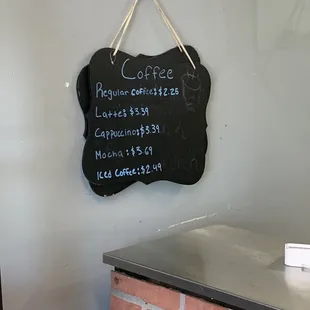 Coffee
Regular coffee:$2.25
Latte:$3.39
Cappuccino:$3.39
Mocha:$3.69
Iced Coffee:$2.49